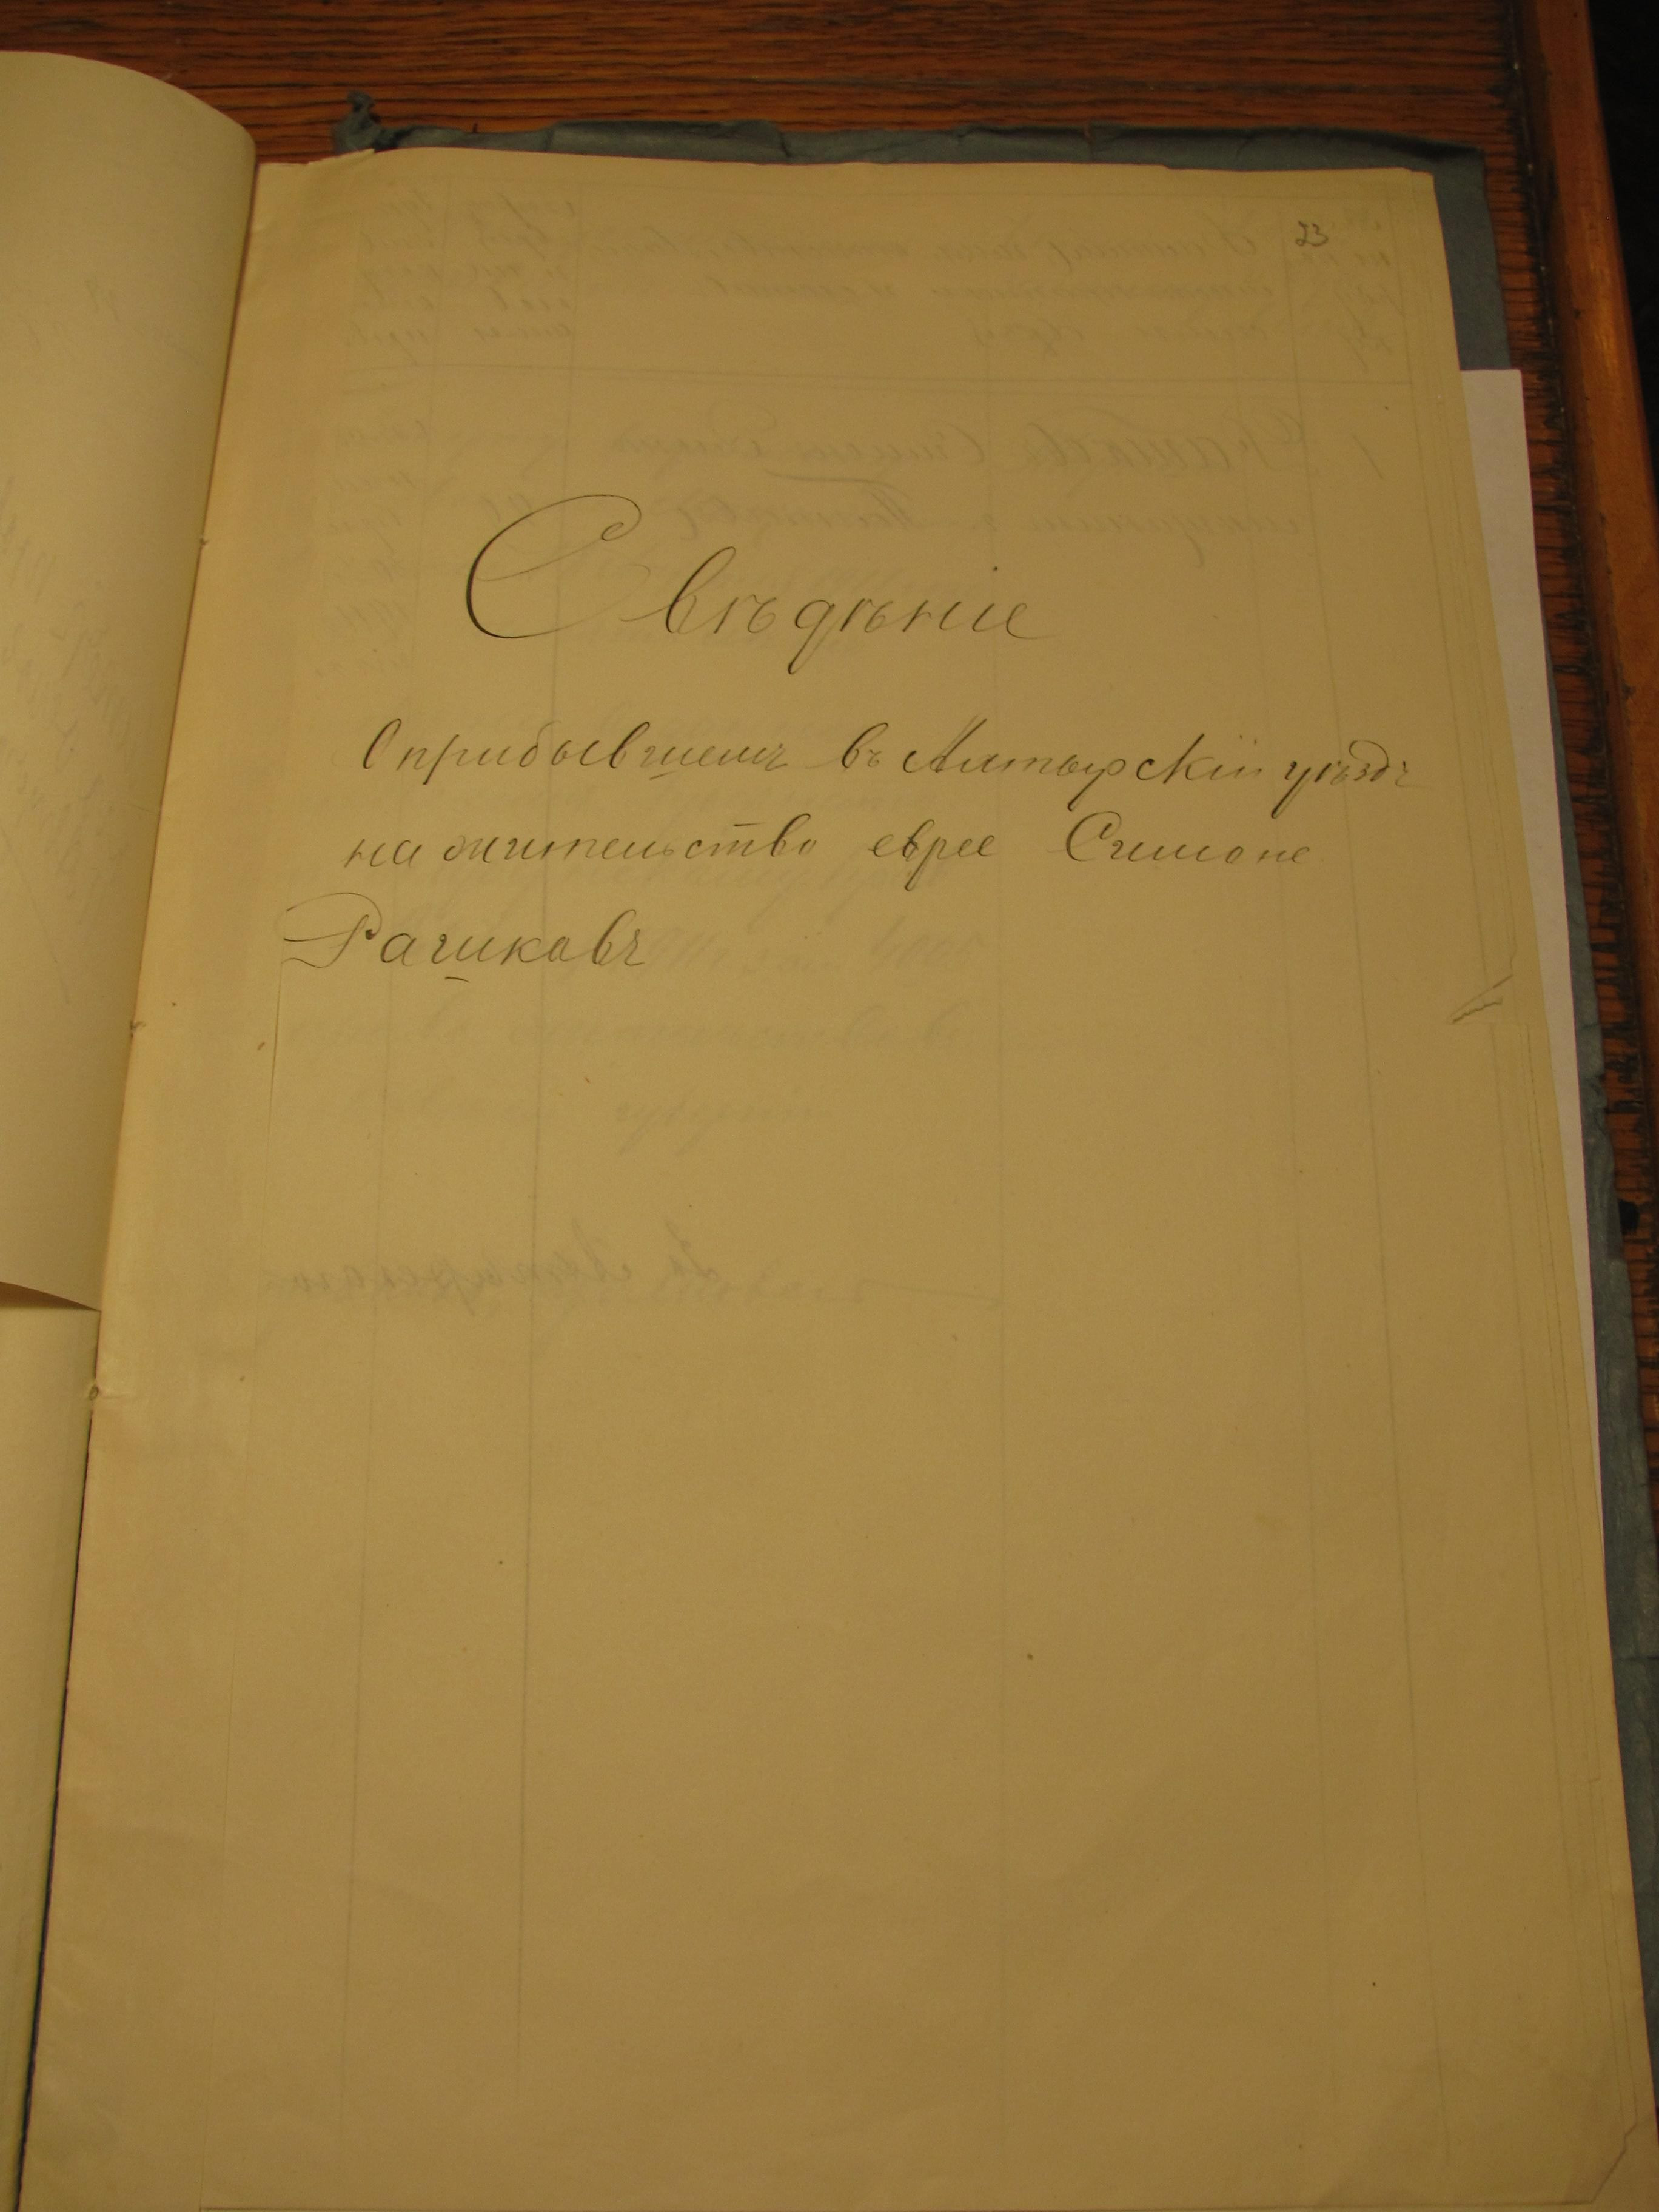 23
Свѣдѣніе
О прибывшемъ въ Алатырскій уѣздъ
на жительство еврее Симоне
Рашковъ